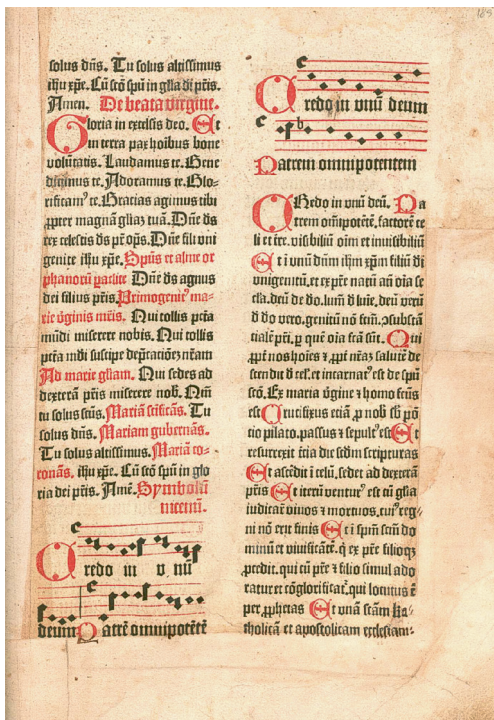 solus dñs. Tu solus altissimus
ihu xp̃e. Cũ scõ spũ in glã dei p̃ris.
Amen. De beata virgine.
Gloria in excelsis deo. Et
in terra pax hoibus bone
voluntatis. Laudamus te. Bene
dicimus te. Adoramus te. Glo-
rificamꝰ te. Gracias agimus tibi
ꝓpter magnã glãz tuã. Dñe dš
rex celestis dš pr̃ op̃s. Dñe fili vni
genite ihu xp̃e. Sp̃us et alme or
phanorũ paclite Dñe dš agnus
dei filius p̃ris. Primogenitꝰ ma-
rie v̓ginis mr̃is. Qui tollis pctã
mũdi miserere nobis. Qui tollis
pctã mdi suscipe dep̃cationez nr̃am
Ad marie glĩam. Qui sedes ad
dexterã pris miserere nob̃. Qm̃
tu solus scũs. Mariã sc̃ificãs. Tu
solus dñs. Mariam gubernãs.
Tu solus altissimus. Mariã co-
ronãs. ihu xp̃e. Cũ scõ spũ in glo
ria dei p̃ris. Amẽ. Symbolũ
nicenũ.
Credo in v nũ
deum Patrẽ omnipotẽtẽ
Credo in vnũ deum
Patrem omnipotentem
CRedo in vnũ deũ. Pa
trem om̃ipotẽtẽ. factorẽ ce
li et tre. visibiliũ oim̃ et inuisibiliũ
Et i vnũ dñm ihm̃ xpm̃ filiũ di
vnigenitũ. et ex pr̃e natũ añ oĩa se
cła. deũ de do. lum̃ d̃ luĩe. deũ verũ
d̃ do vero. genitũ nõ fcm̃. ꝯsubstã
tialẽ p̃ri. ꝑ quẽ oĩa fcã sũt. Qui
ꝓpt̓ nos hoĩes ⁊ ꝓpt̓ nr̃az salutẽ de
scendit d̓ cel. et incarnatꝰ est de spũ
scõ. Ex maria v̓gine ⁊ homo fcũs
est Crucifixus eciã ꝓ nob̃ sb̃ põ
tio pilato. passus ⁊ sepultꝰ est Et
resurrexit tcia die scdm̃ scripturas
Et ascẽdit i celũ. sedet ad dexterã
p̃ris Et iterũ venturꝰ est cũ glĩa
iudicaẽ viuos ⁊ mortuos. cuiꝰ reg-
ni nõ erit finis Et i spm̃ scm̃ do
minũ et viuificãtẽ. q̃ ex pr̃e filioqꝫ
ꝓcedit. qui cũ pr̃e ⁊ filio simul ado
ratur et cõglorificat̃. qui locutus ẽ
per ꝓphetas Et vnã scãm ka-
tholicã et apostolicam ecclesiam-